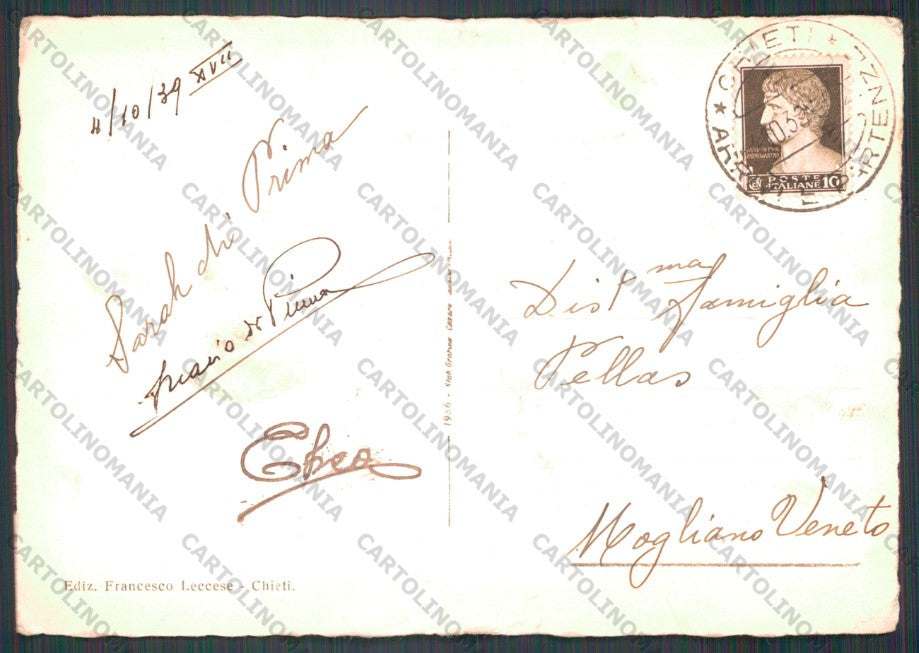 4/10/39 XVII
Sarah di Prima
Mario di Prima
Ediz. Francesco Leccese - Chieti.
CHIETI
ARRIVI E PARTENZE
10.39
POSTE
ITALIANE 10
Dist.ma Famiglia
Pellas
Mogliano Veneto
CARTOLINOMANIA